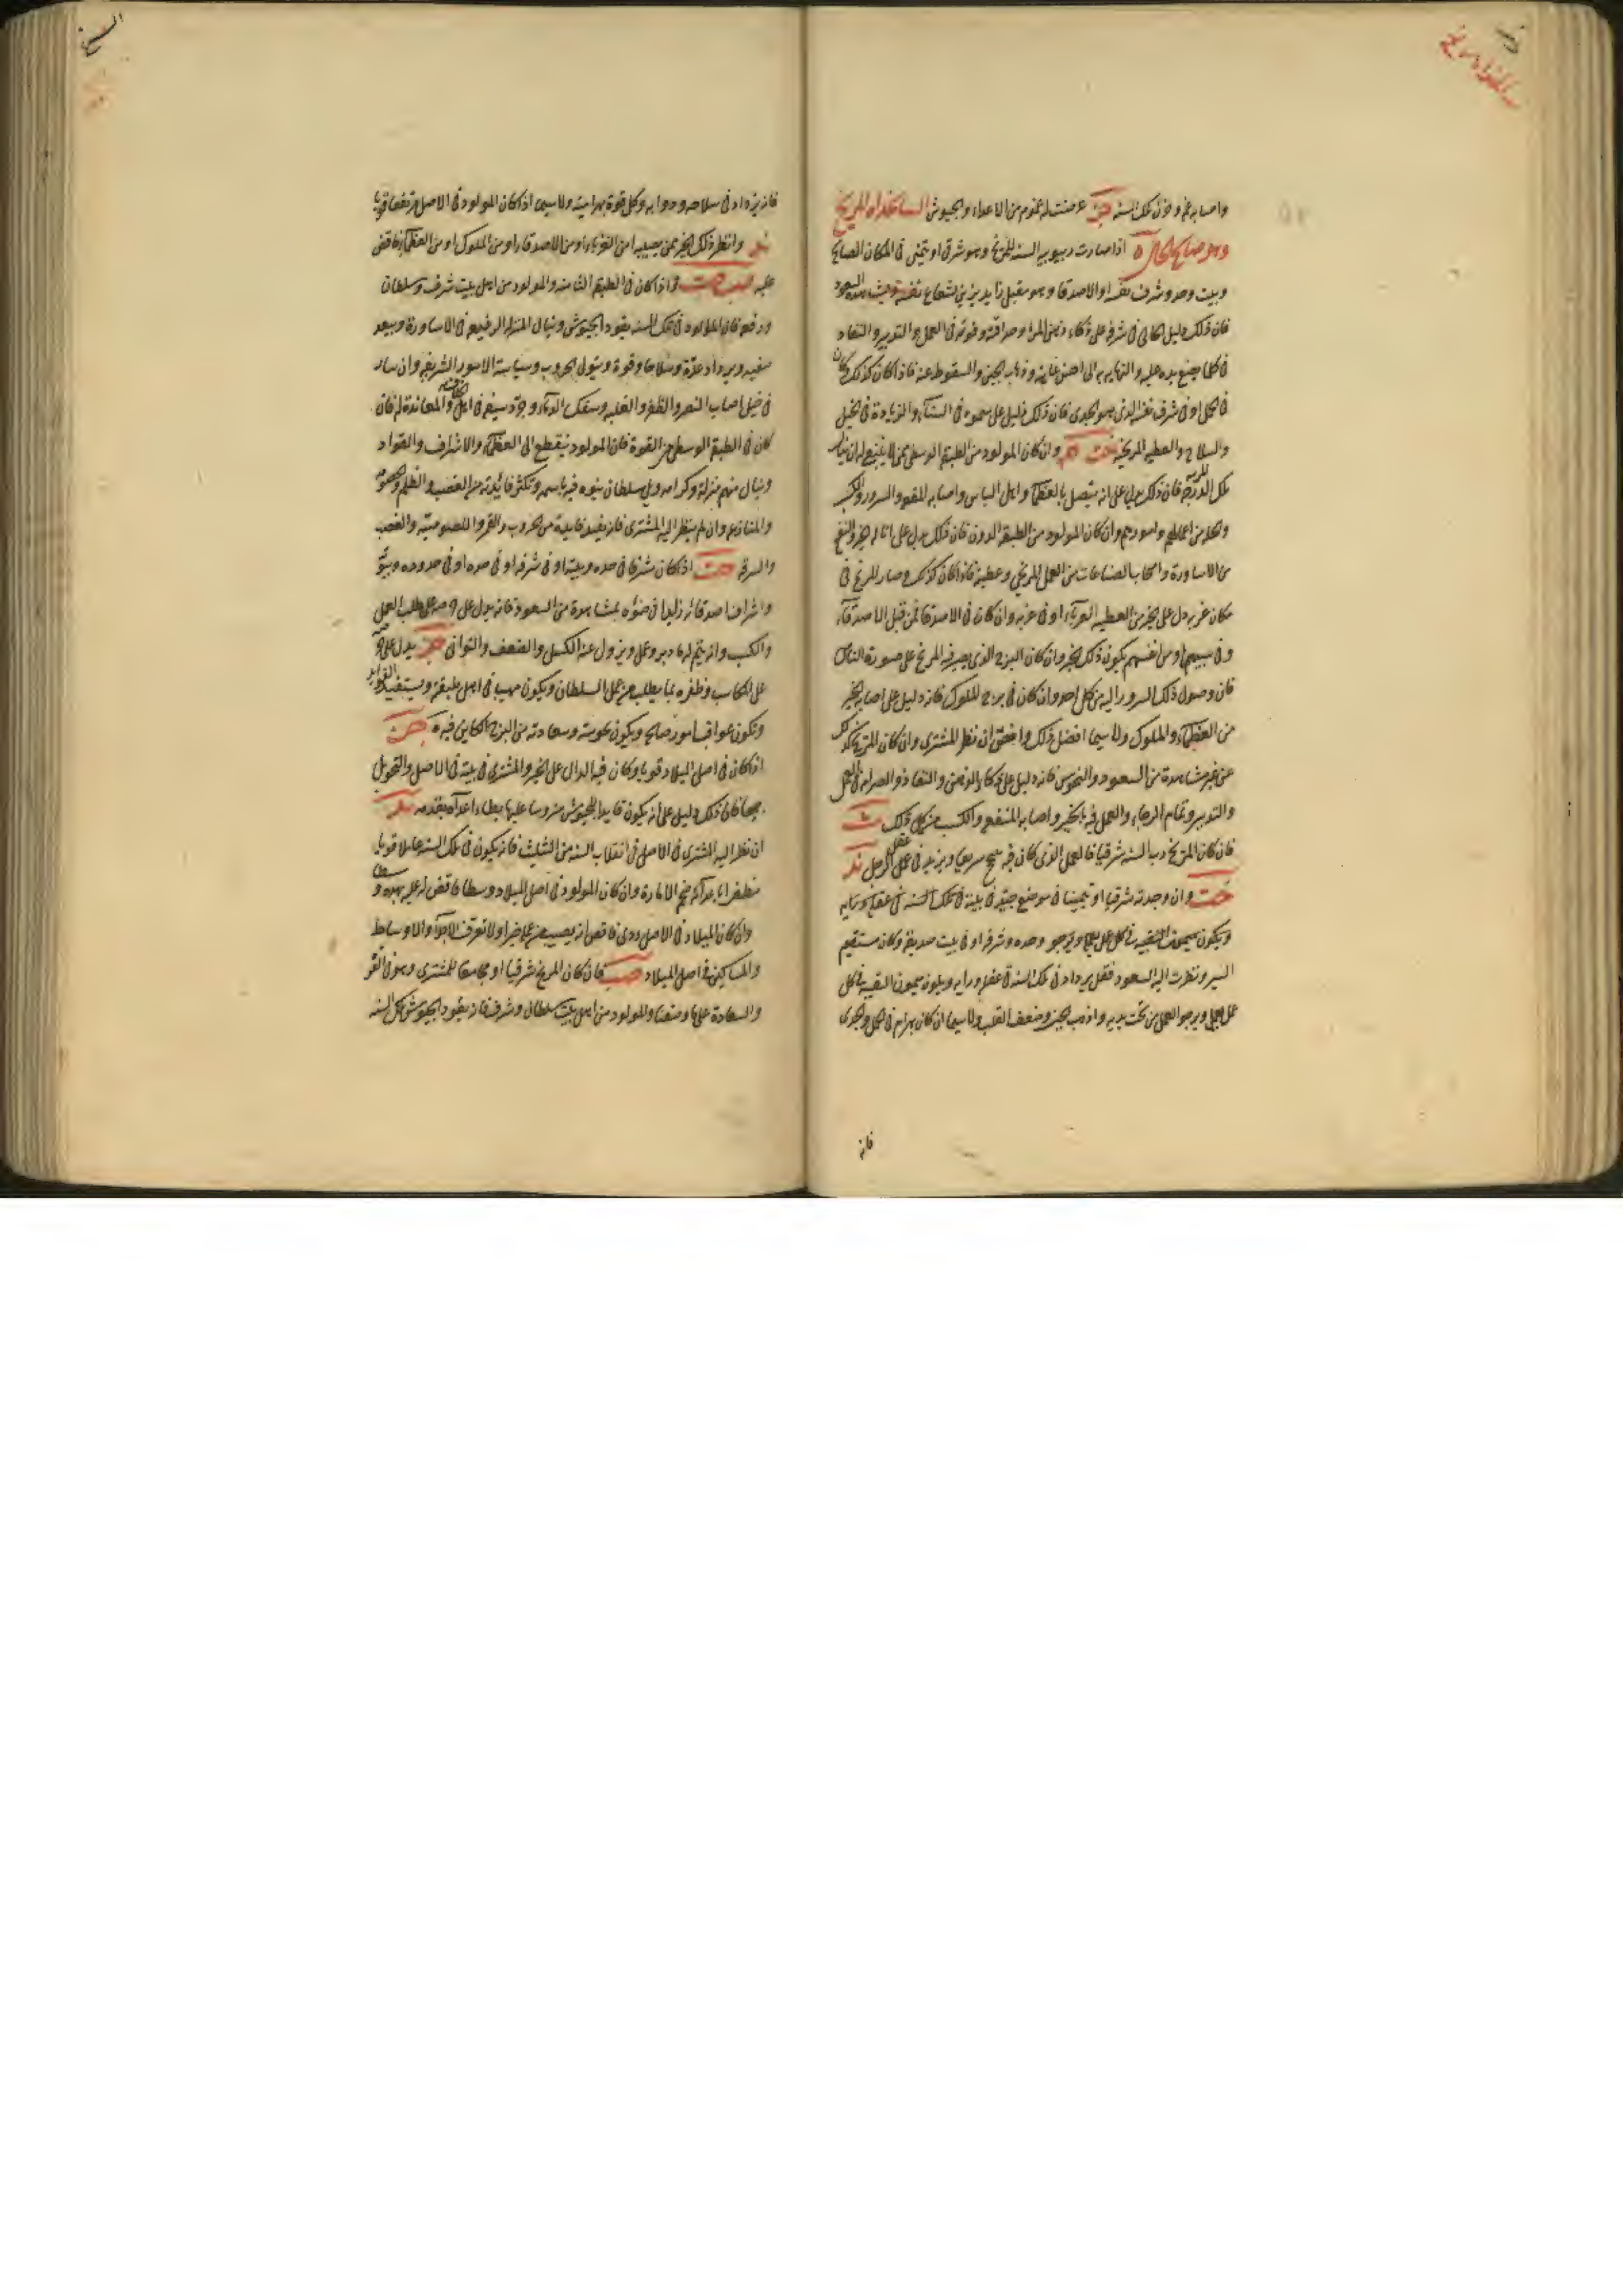 واصابه غم وحزن تلك السنه عرضت له هموم من الاعداء والجيوش السالخداه المريخ
وهو صالح الحال ه اذا صارت ربوبيه السنه للمريخ وهو شرقى او يتمنى فى المكان الصالح
وبيت وحد وشرف نفسه او الاصدقا وهو مقبل زايد يزينى لشعاع نفسه وميشاهده السعود
فان ذلك دليل على ذكاء ذهن المراء وحداقته وقوته فى العمل والتدبير والنفاد
فى كلما يضع يده عليه والنهايه به الى احسن غايته وذهاب الجبن والسقوط عنه فاذا كان كذلك وكان
فى الحمل او فى شرف نفسه الذى هو الجدى فان ذلك دليل على سموه فى السناء والزيادة فى الخيل
والسلاح والعطيه المريخيه وان كان المولود من الطبقه الوسطى ممن لا ينبغى له ان ينال
تلك الدرجة فان ذلك يدل على انه يتصل بالعظماء واهل الباس واصابه المنفعه والسرور والكسب
والحظ من اعمالهم وامورهم وان كان المولود من الطبقه الدون فان ذلك يدل على اناله الخير والنفع
من الاساورة واصحاب الصناعات من العمل المريخى وعطيته فاذا كان كذلك وصار المريخ فى
مكان غربه دل على الخير من العطيه الغرباء او فى غربه وان كان فى الاصدقا فمن قبل الاصدقاء
وفى سببهم او من انفسهم يكون ذلك الخير وان كان البرج الذى يصير فيه المريخ على صورة الناس
فان وصول ذلك السرور اليه من كل احد وان كان فى برج الملوك فانه دليل على اصابه الخير
من العظماء والملوك ولاسيما افضل ذلك واحقق ان نظر المشترى وان كان المريخ كذلك
عن غير مشاهدة من السعود والنحوس فانه دليل على ذكاء الذهن والنفاذ والصرامه فى العمل
والتدبير وتمام الرجاء والعمل فيه بالخير واصابه المنفعه والكسب من كل ذلك
فان كان المريخ رب السنه شرقيا فالعمل الذى كان فيه ينجح سريعا ويزيد فى عقل الرجل
وان وجدته شرقيا او يتمينا فى موضع جيد فى بيته فى تلك السنه فى عقله ورايه
ويكون ميمون النقيبه فى كل عمل يعمله ويرجو وحده وشرفه او فى بيت صديقه وكان مستقيم
السير ونظرت اليه السعود فقل يزداد فى تلك السنة فى عقله ورايه ويكون ميمون النقيبه فى كل
عمل يعمل ويرجو العمل من تحت يديه واذهب الجبن وضعف القلب ولاسيما ان كان بهرام فى الحمل والجدى
فانه
فانه يزداد فى سلاحه ودوابه وكل قوة بهراميته ولاسيما اذا كان المولود فى الاصل مرتفعا قويا
وانظر ذلك الخير ممن يصيبه امن الغرباء او من الاصدقاء او من الملوك او من العظماء فاقض
عليه واذا كان فى الطبقه الثامنه والمولود من اهل بيت شرف وسلطان
ورفعه فان المولود فى تلك السنه يقود الجيوش وينال المنزله الرفيعه فى الاساورة ويبعد
صيته ويزداد عدة وسلاحا وقوة ويتولى الحروب وسياسة الامور الشريفه وان سار
فى خيل اصاب النصر والظفر والغلبه وسفك الدماء وجرد سيفه فى اهل والمعاندة له فان
كان فى الطبقه الوسطى من القوة فان المولود ينقطع الى العظماء والاشراف والقواد
وينال منهم منزلة وكرامه ويلى سلطان ينوه فيه باسمه وتكثر فائدته من الغضب والظلم والخصومه
والمنازعه وان لم ينظر اليه المشترى فانه يفيد فايدة من الحروب والقهر واللصوصيه والغصب
والسرقه اذا كان مشرقا فى حده وبيته او فى شرفه او فى ضده او فى حدوده وبيوت
واشراف اصدقائه زايدا فى ضوئه بمشاهدة من السعود فانه يدل على حرصه على طلب العمل
والكسب وانه يتم له ما دبر وعمل ويزول عنه الكسل والضعف والتوانى يدل على
على الكاسب وظفره بما يطلب من عمل السلطان ويكون مهيب فى اهل طبقته ويستفيد الفوايد
وتكون عواقب اموره صالحه ويكون نحوسته وسعادته من البرج الكاين فيه ه
اذا كان فى اصل الميلاد قويا وكان فيه الدال على الخير والمشترى فى بيته فى الاصل والتحويل
جميعا فان ذلك دليل على انه يكون قايد الجيوش مروسا عليها يطاء اعداه بقدمه
ان نظر اليه المشترى فى الاصل فى انقلاب السنه من التثليث فانه يكون فى تلك السنه عاملا قويا
مظفرا باعدائه ضخم الامارة وان كان المولود فى اصل الميلاد وسطا فاقض له عليه بهذه
وان كان الميلاد فى الاصل ردى فاقض انه يصيب من عمله خيرا ولا تعرف الاجواد والاوساط
والمساكين فى اصل الميلاد فان كان المريخ شرقيا او مجامعا للمشترى وهو فى القوة
والسعادة على ما وصفنا والمولود من اهل بيت سلطان وشرف فانه يقود الجيوش تلك السنه